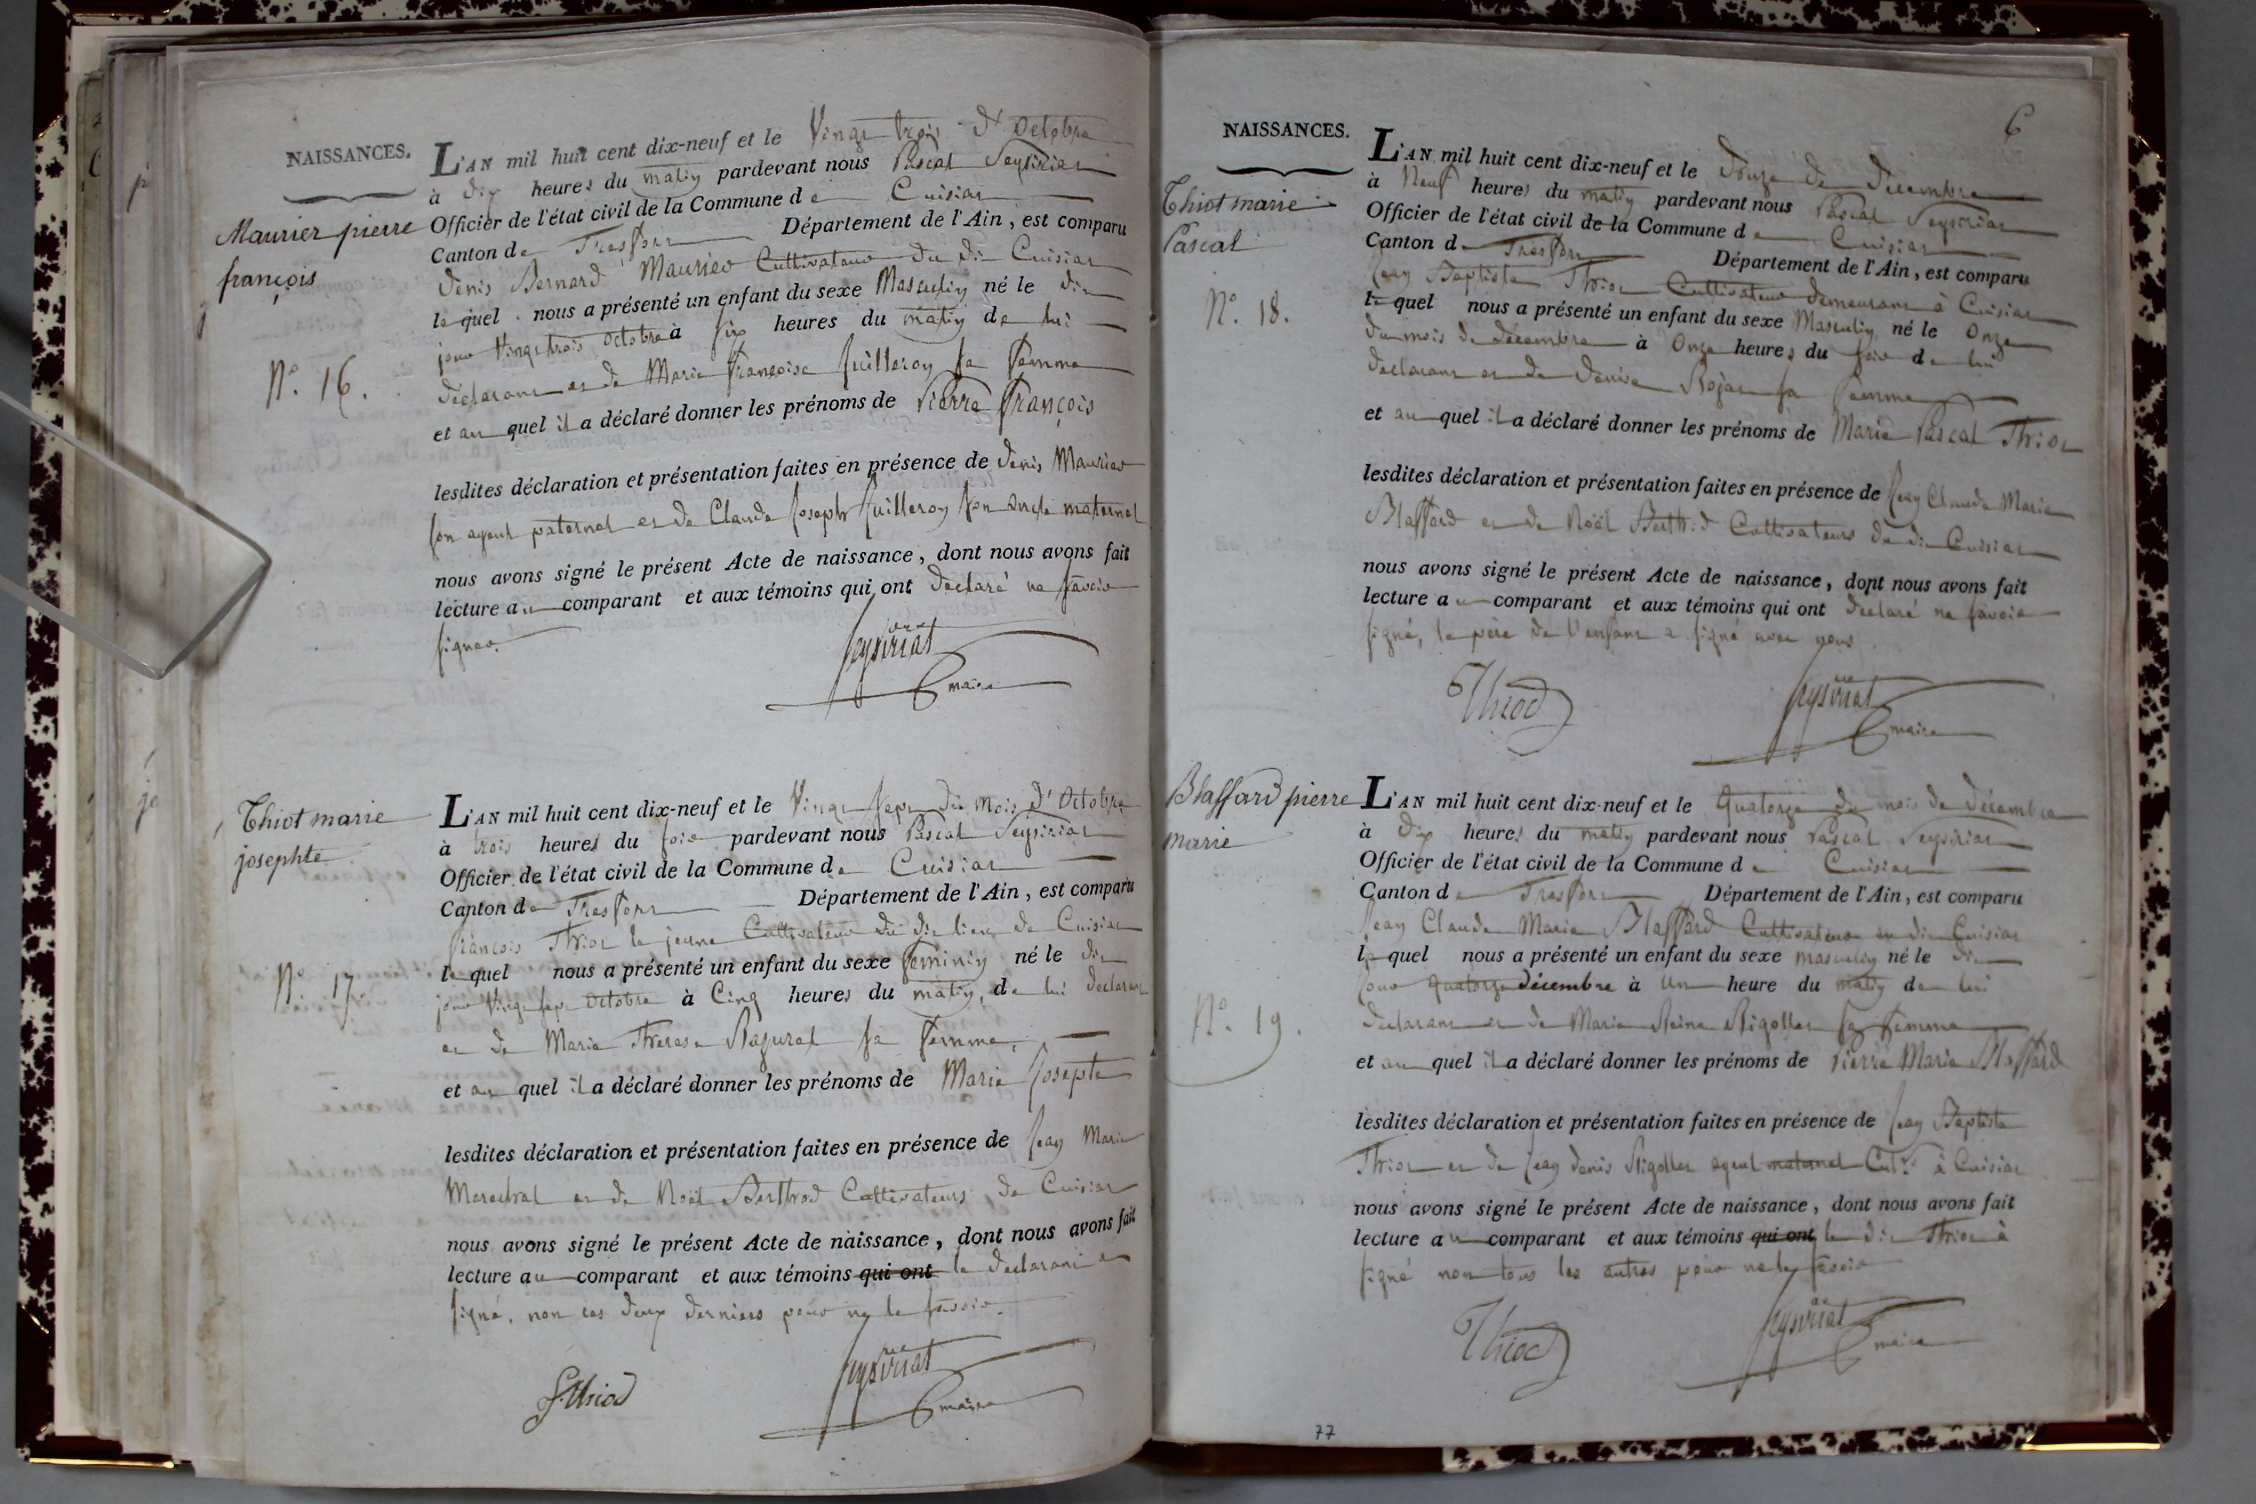 NAISSANCES.
Maurier pierre
françois
N.º 16.
L'AN mil huit cent dix-neuf et le Vingt trois d'Octobre
à dix heures du matin pardevant nous Pascal Seysiriat
Officier de l'état civil de la Commune de Cuisiat
Canton de Treffort Département de l'Ain, est comparu
denis Bernard Maurier Cultivateur du dit Cuisiat
lequel nous a présenté un enfant du sexe Masculin né le dit
jour Vingt trois octobre à six heures du matin de lui
déclarant et de Marie françoise Guilleroy sa femme
et auquel il a déclaré donner les prénoms de Pierre François
lesdites déclaration et présentation faites en présence de denis Maurier
son ayeul paternel et de Claude Joseph Guilleroy son oncle maternel
nous avons signé le présent Acte de naissance, dont nous avons fait
lecture au comparant et aux témoins qui ont déclaré ne savoir
signer.
Seysiriat
maire
Thiot marie
josephte
N.º 17.
L'AN mil huit cent dix-neuf et le Vingt sept du mois d'Octobre
à trois heures du soir pardevant nous Pascal Seysiriat
Officier de l'état civil de la Commune de Cuisiat
Canton de Treffort Département de l'Ain, est comparu
françois Thiot le jeune Cultivateur du dit lieu de Cuisiat
lequel nous a présenté un enfant du sexe feminin né le dit
jour Vingt sept octobre à Cinq heures du matin, de lui déclarant
et de Marie Therese sa femme,
et auquel il a déclaré donner les prénoms de Marie Josepte
lesdites déclaration et présentation faites en présence de Jean Marie
Marechal et de Noël Berthod Cultivateurs de Cuisiat
nous avons signé le présent Acte de naissance, dont nous avons fait
lecture au comparant et aux témoins qui ont le déclarant a
signé, non les deux derniers pour ne le savoir.
f. Thiod
Seysiriat
maire
6
NAISSANCES.
Thiot marie
Pascal
N.º 18.
L'AN mil huit cent dix-neuf et le douze de décembre
à Neuf heures du matin pardevant nous Pascal Seysiriat
Officier de l'état civil de la Commune de Cuisiat
Canton de Treffort Département de l'Ain, est comparu
Jean Baptiste Thiot Cultivateur demeurant à Cuisiat
lequel nous a présenté un enfant du sexe Masculin né le Onze
du mois de décembre à Onze heures du soir de lui
déclarant et de denise sa femme
et auquel il a déclaré donner les prénoms de Marie Pascal Thiot
lesdites déclaration et présentation faites en présence de Jean Claude Marie
Blaffard et de Noël Berthod Cultivateurs du dit Cuisiat
nous avons signé le présent Acte de naissance, dont nous avons fait
lecture au comparant et aux témoins qui ont déclaré ne savoir
signé, le père de l'enfant a signé avec nous
Thiod
Seysiriat
maire
Blaffard pierre
marie
N.º 19.
L'AN mil huit cent dix-neuf et le Quatorze du mois de décembre
à dix heures du matin pardevant nous Pascal Seysiriat
Officier de l'état civil de la Commune de Cuisiat
Canton de Treffort Département de l'Ain, est comparu
Jean Claude Marie Blaffard Cultivateur au dit Cuisiat
lequel nous a présenté un enfant du sexe masculin né le dit
jour Quatorze décembre à Une heure du matin de lui
déclarant et de Marie Reine Rigollet sa femme
et auquel il a déclaré donner les prénoms de Pierre Marie Blaffard
lesdites déclaration et présentation faites en présence de Jean Baptiste
Thiot et de Jean denis Rigollet ayeul maternel Cult.rs à Cuisiat
nous avons signé le présent Acte de naissance, dont nous avons fait
lecture au comparant et aux témoins qui ont le dit Thiot à
signé non tous les autres pour ne le savoir
Thiod
Seysiriat
maire
77